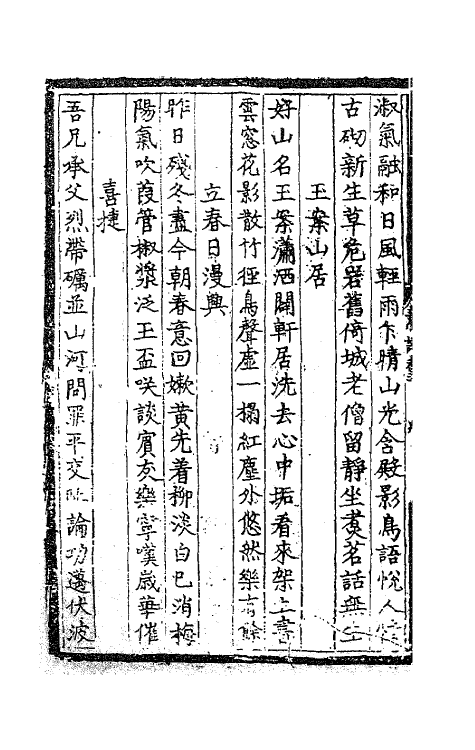 淑氣融和日風輕雨乍晴山光含殿影鳥語悅人
古砌新生草危岩舊倚城老僧留靜坐煑茗話無生
玉案山居
好山名玉案瀟洒闢軒居洗去心中垢看來架上書
雲窓花影散竹徑鳥聲虛一榻紅塵外悠然樂有餘
立春日漫興
昨日殘冬盡今朝春意回嫩黄先着柳淡白已消梅
陽氣吹葭管椒漿泛玉盃咲談賓友樂寧嘆歲華催
喜捷
吾兄承父烈帶礪並山河問罪平交論功邁伏波